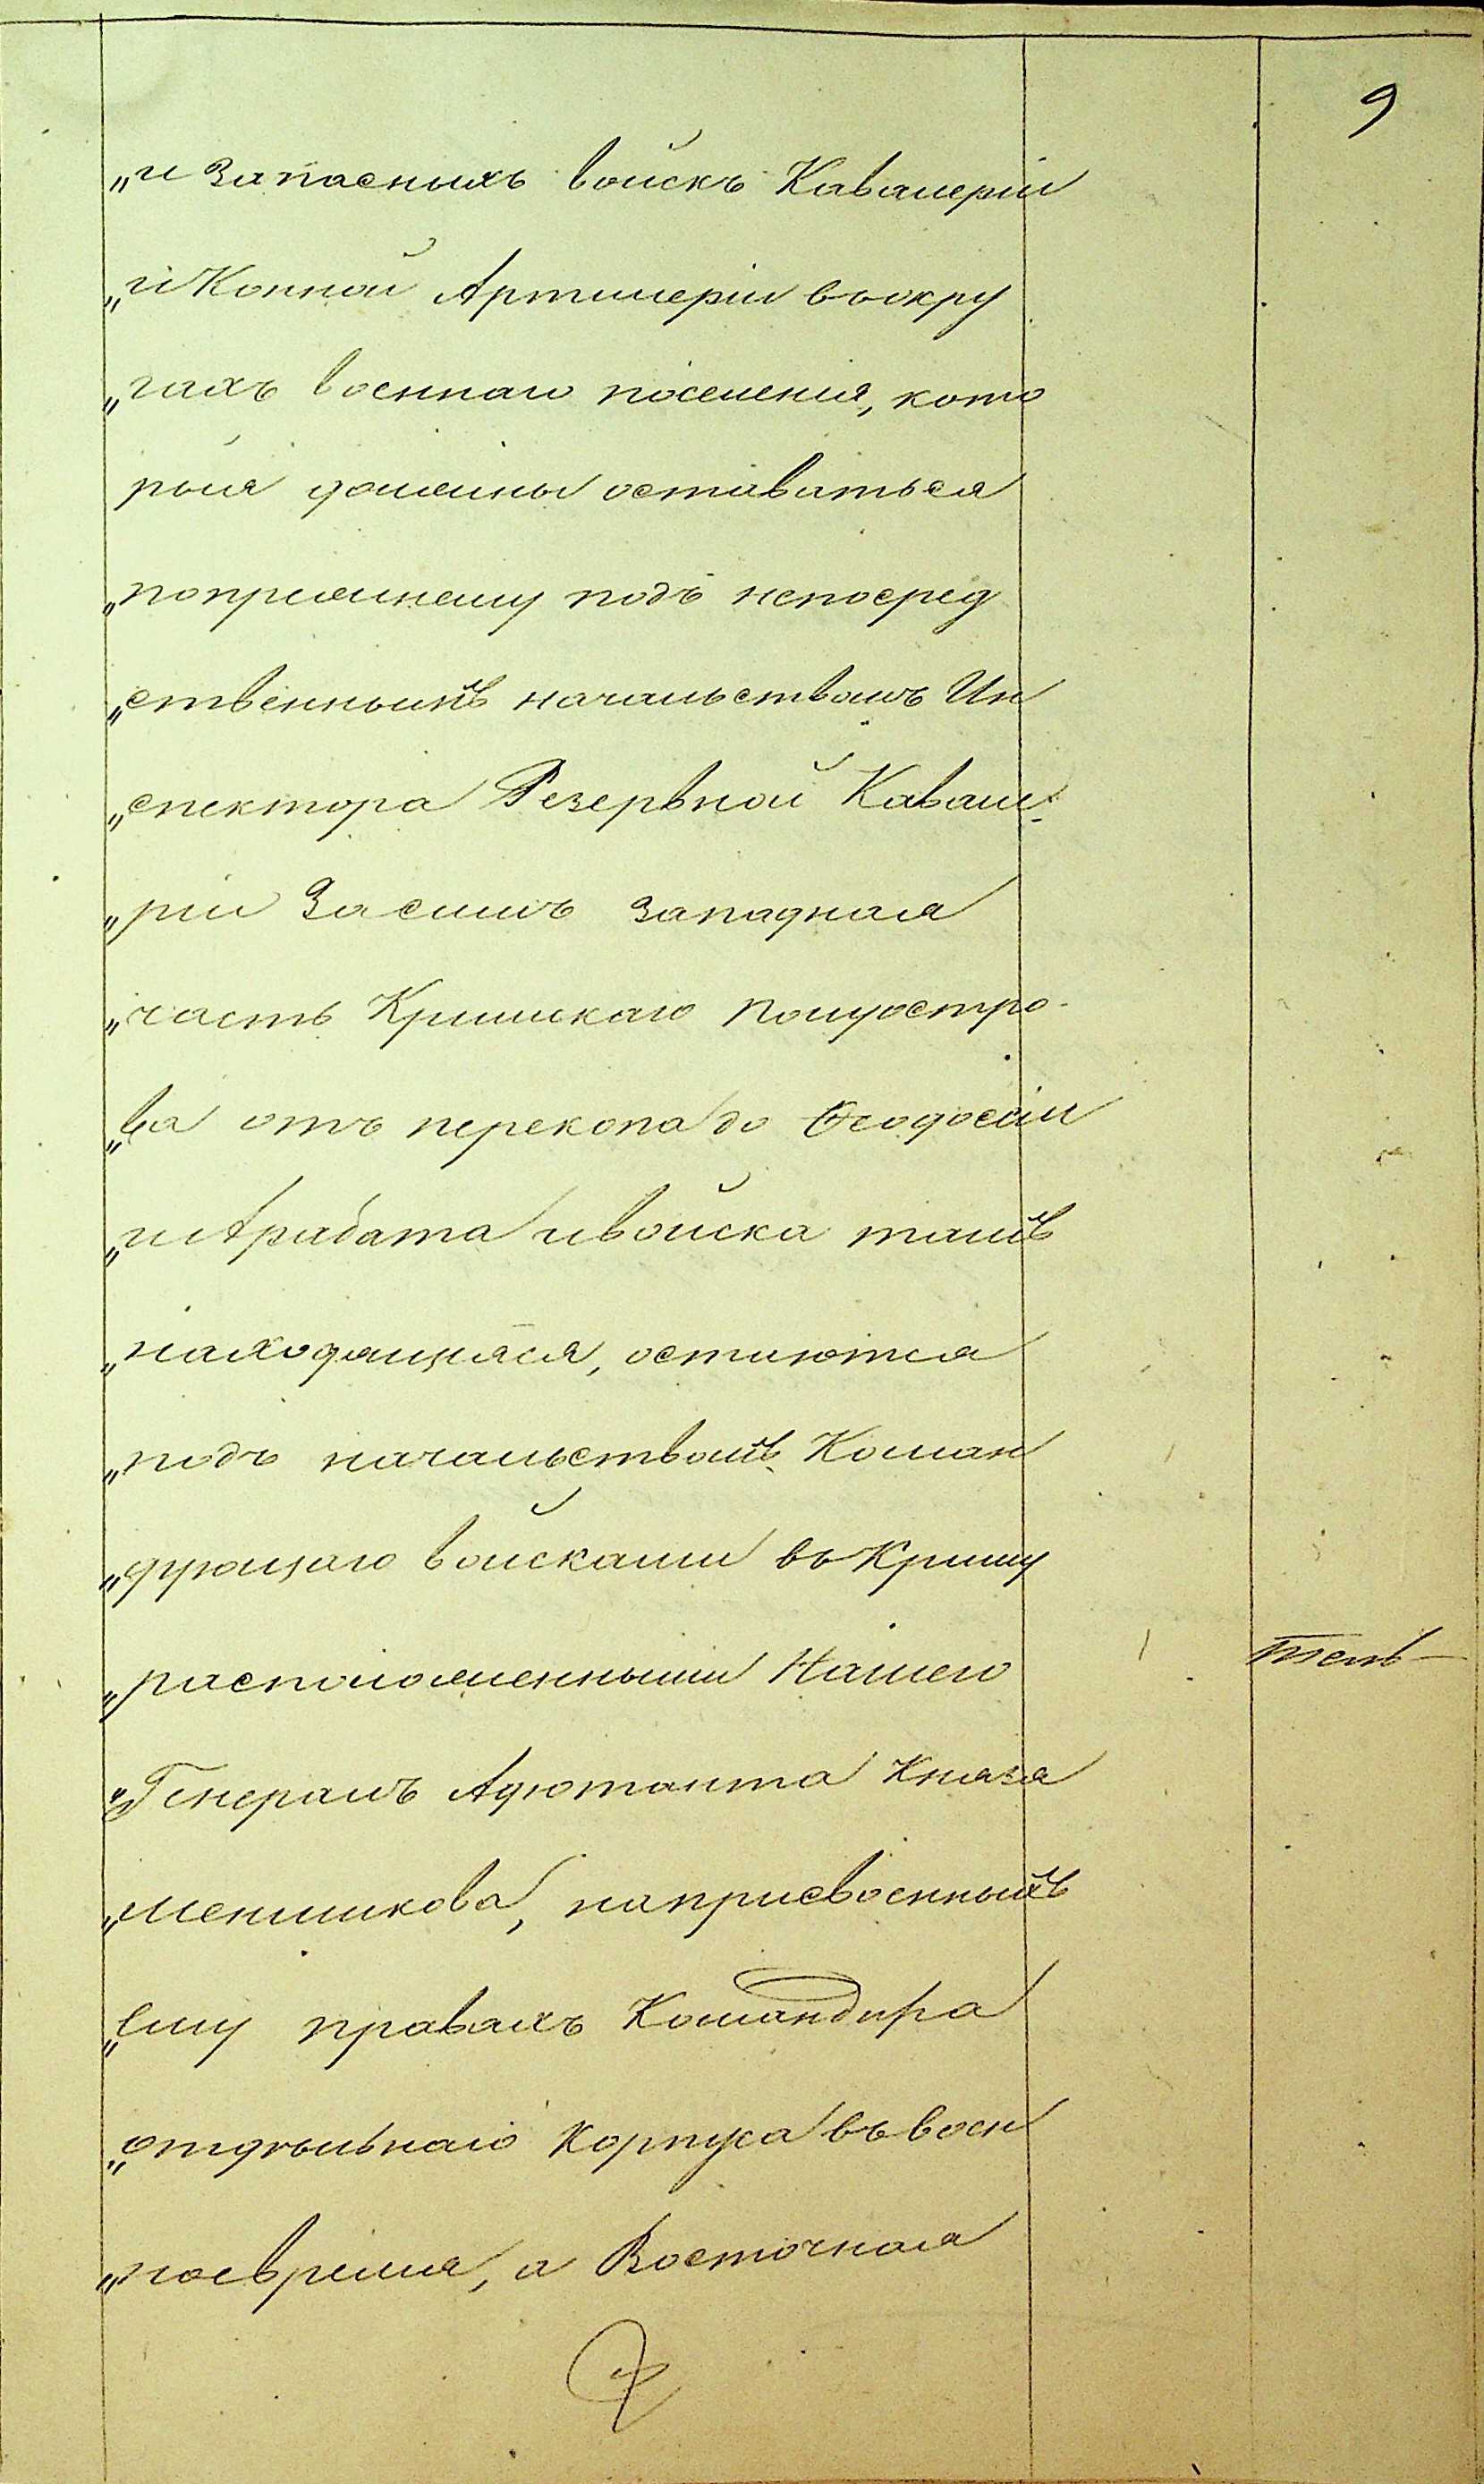 9
„и запасныхъ войскъ Кавалеріи
„и Конной Артилеріи въ окру
„гахъ военнаго поселенія, кото
рыя должны оставаться
„попрежнему подъ непосред
„ственнымъ начальствомъ Ин
„спектора Резервной Кавале:
„ріи Засимъ западная
„часть Крымскаго полуостро-
„ва отъ перекопа до Ѳеодосіи
„и Арабата и войска тамъ
„находящіяся, остаются
„подъ начальствомъ Коман
„дующаго войсками въ Крыму
„расположенными Нашего
„Генералъ Адютанта Князя
„меншикова, на присвоенныхъ
„ему правахъ Командира
„отдѣльнаго Корпуса въ воен
„ное время, а Восточная